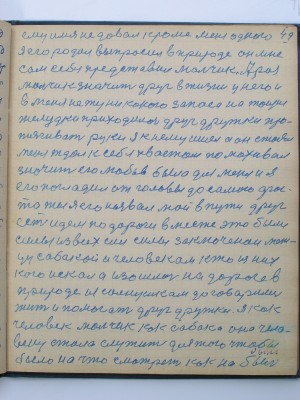 ему имя не довал кроме меня одного 49
я его родил выпросил в природе он мне
сам себя представил молчик. А раз
молчик значит друг в жизни у него и
в меня не ту никокого запаса на тощии
желудки приходимся друг дружки про-
тягивать руки я к нему ишел а он стоял
меня ждал к себе хвостом помахивал
значит его любов была для меня и я
его погладил от головы до самого
то ты я его назвал мой в пути друг
сет идем по дороги в месте это были
силы из всех сил силы заключеной меж-
ду собакой и человекам кто из них
кого искал а изошлис на дороге в
природе и сомнушкам договорили
жит и помогат друг дружки. Я как
человек молчик как собака она чела-
веку стала служит для того чтобы
было на что смотрет как на